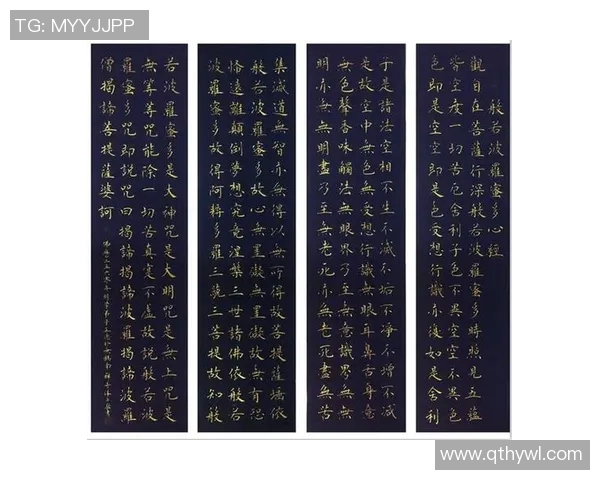 TG: MYYJJPP
般若波羅蜜多心經
觀自在菩薩行深般若波羅蜜多時照見五蘊
皆空度一切苦厄舍利子色不異空空不異色
色即是空空即是色受想行識亦復如是舍利
子是諸法空相不生不滅不垢不淨不增不減
是故空中無色無受想行識無眼耳鼻舌身意
無色聲香味觸法無眼界乃至無意識界無無
明亦無無明盡乃至無老死亦無老死盡無苦
集滅道無智亦無得以無所得故菩提薩埵依
般若波羅蜜多故心無罣礙無罣礙故無有恐
怖遠離顛倒夢想究竟涅槃三世諸佛依般若
波羅蜜多故得阿耨多羅三藐三菩提故知般
若波羅蜜多是大神咒是大明咒是無上咒是
無等等咒能除一切苦真實不虛故說般若波
羅蜜多咒即說咒曰揭諦揭諦波羅揭諦波羅
僧揭諦菩提薩婆訶
www.qthywl.com